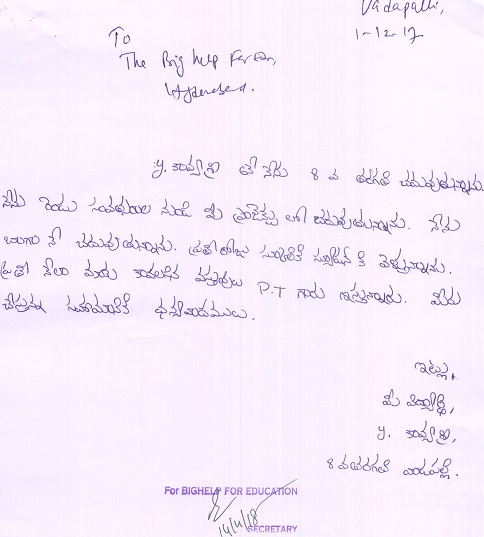 Vadapalli,
1-12-17
To
The Big help
Hyderabad.
y. కావ్యశ్రీ అనే నేను 8 వ తరగతి చదువుతున్నాను
నేను రెండు సంవత్సరాల నుండి మీ ప్రాజెక్టు లో చదువుతున్నాను. నేను
బాగా నే చదువుతున్నాను. ప్రతి రోజు స్కూల్ కి ట్యూషన్ కి వెళ్తున్నాను.
ప్రతి నెలా మాకు కావలసిన వస్తువులు P.T గారు ఇస్తున్నారు. మీరు
చేస్తున్న సహాయానికి ధన్యవాదములు.
ఇట్లు,
మీ విద్యార్థి,
y. కావ్యశ్రీ,
8 వ తరగతి వాడపల్లి.
For BIGHELP FOR EDUCATION
14/4/18
SECRETARY